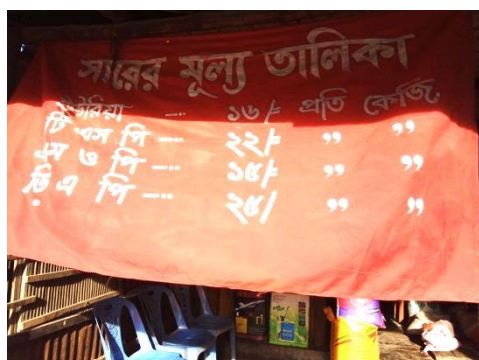 সারের মূল্য তালিকা
ইউরিয়া --- ১৬/= প্রতি কেজি.
টি এস পি --- ২২/= ,, ,,
এম ও পি --- ১৫/= ,, ,,
ডি এ পি --- ২৫/ ,, ,,